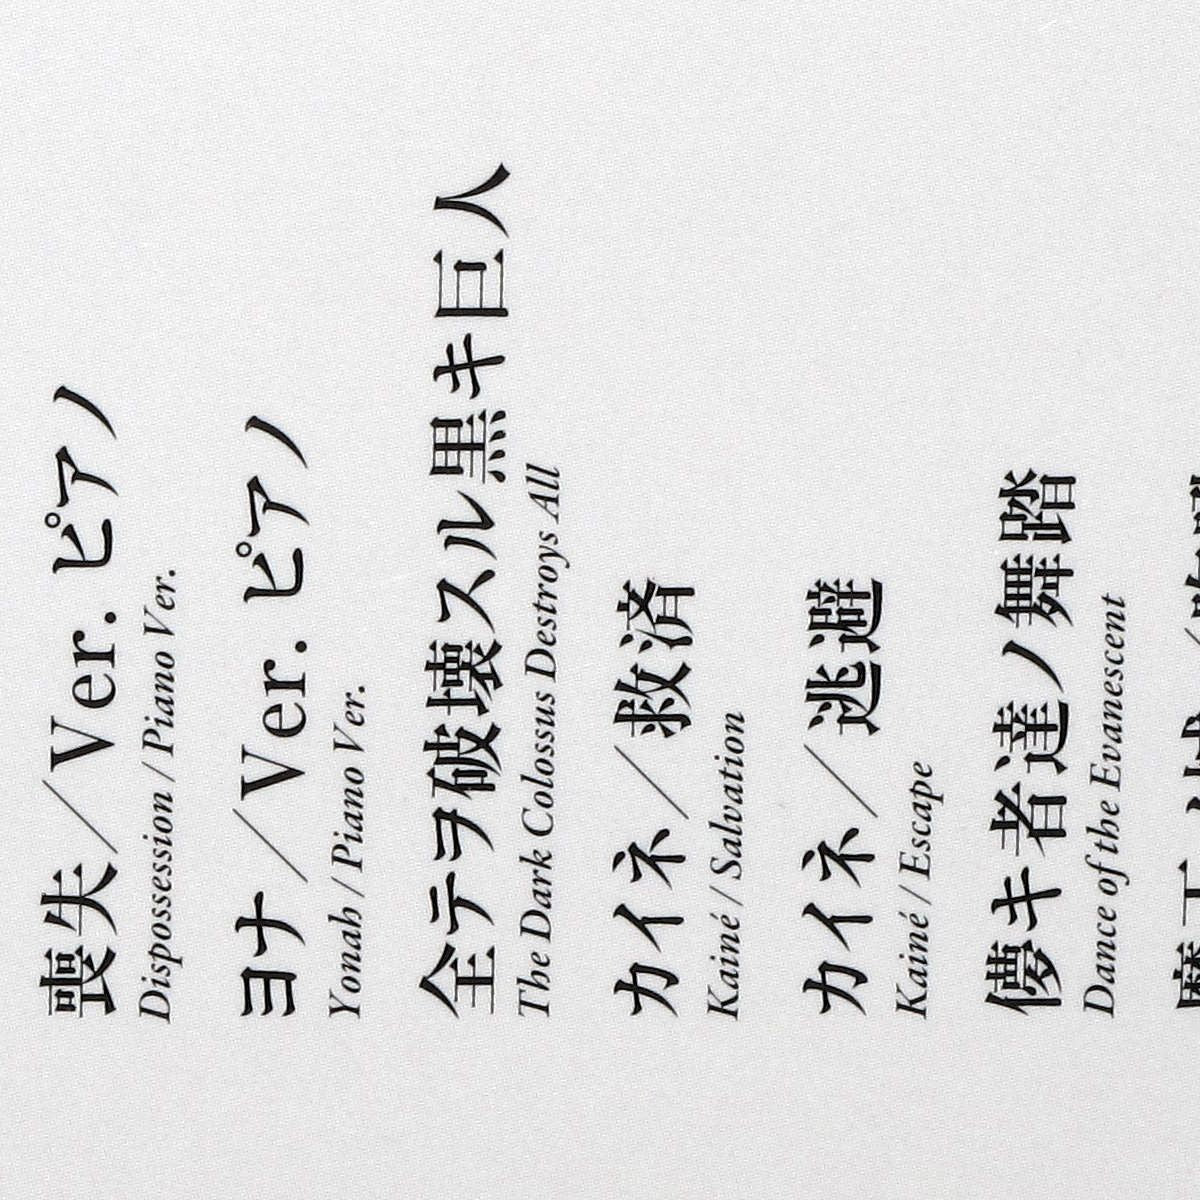 喪失／Ver. ピアノ
Dispossession / Piano Ver.
ヨナ／Ver. ピアノ
Yonah / Piano Ver.
全テヲ破壊スル黒キ巨人
The Dark Colossus Destroys All
カイネ／救済
Kainé / Salvation
カイネ／逃避
Kainé / Escape
儚キ者達ノ舞踏
Dance of the Evanescent